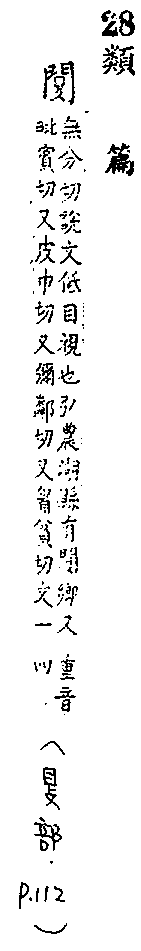 28 類篇
閺
無分切說文低目視也弘農湖縣有閺鄉又 重音
毗賓切又皮巾切又彌鄰切又眉貧切文一 四
(𥄎部. p.112)